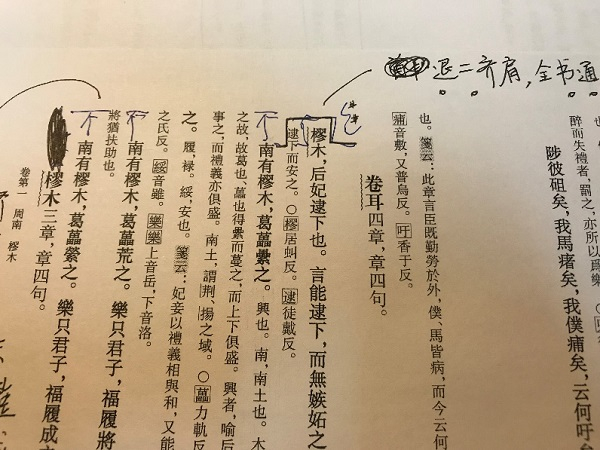 退二齐肩，全书通
醉而失禮者，罰之，亦所以爲樂
陟彼砠矣，我馬瘏矣，我僕痡矣，云何吁
也。箋云：此章言臣既勤勞於外，僕、馬皆病，而今云何
痡音敷，又普烏反。吁香于反。
卷耳四章，章四句。
樛木，后妃逮下也。言能逮下，而無嫉妬之
逮下而安之。○樛居虯反。逮徒戴反。
南有樛木，葛藟纍之。興也。南，南土也。木
之故，故葛也藟也得纍而蔓之，而上下俱盛。興者，喻后
事之，而禮義亦俱盛。南土，謂荆、揚之域。○藟力軌反
之。履，祿。綏，安也。箋云：妃妾以禮義相與和，又能
之氏反。綏音雖。樂樂上音岳，下音洛。
南有樛木，葛藟荒之。樂只君子，福履將
將猶扶助也。
南有樛木，葛藟縈之。樂只君子，福履成
樛木三章，章四句。
卷第一 周南 樛木